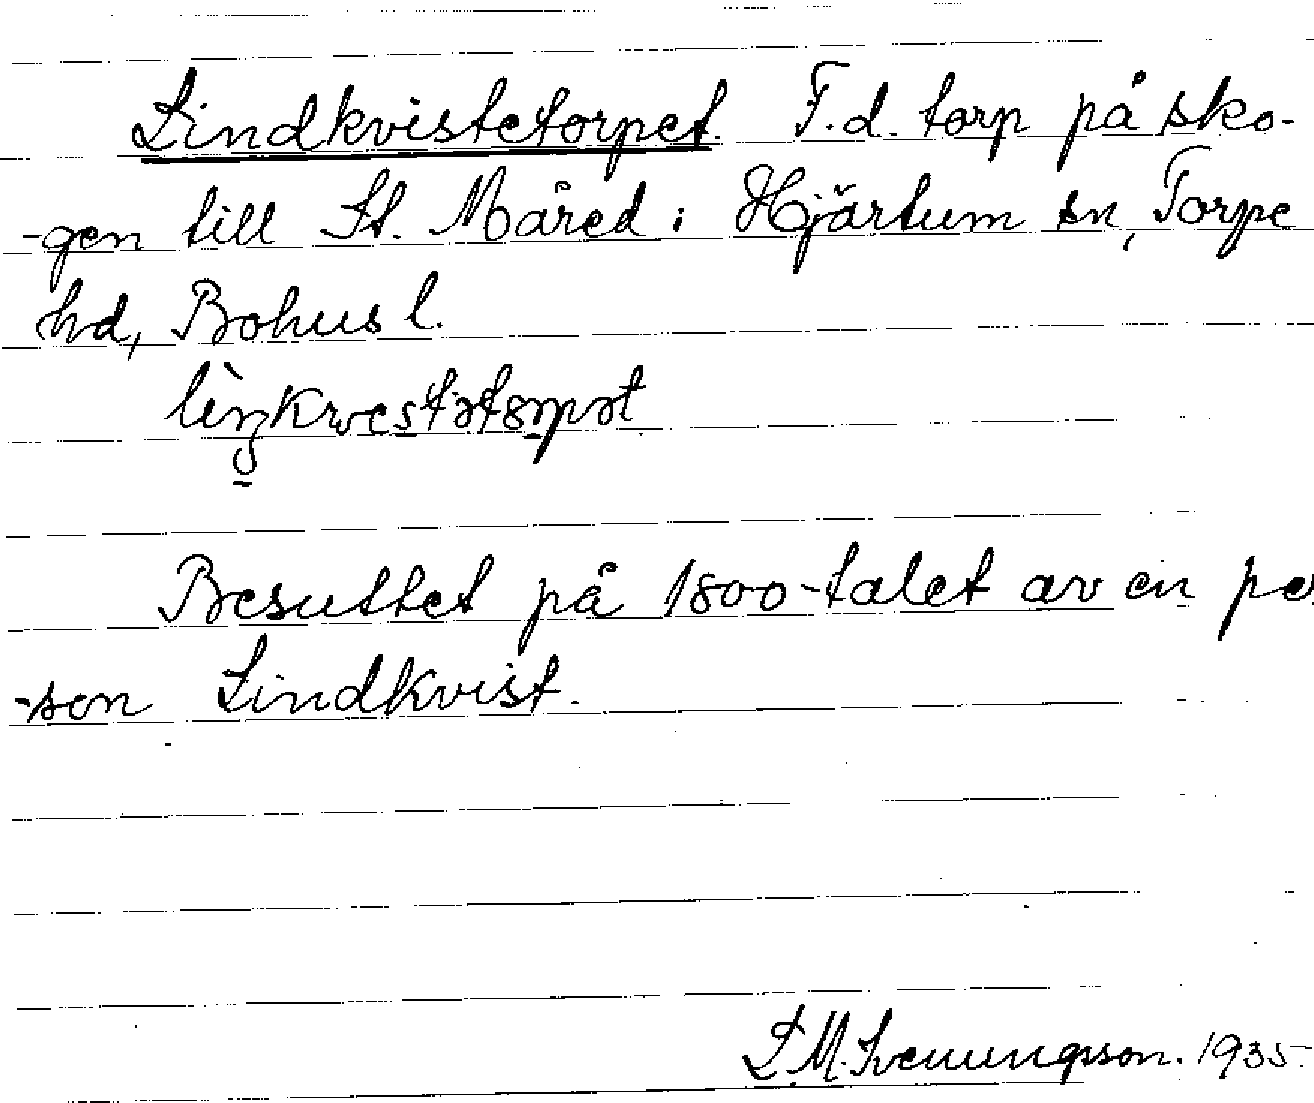 Lindkvistetorpet. F.d. torp på sko-
-gen till St. Måred i Hjärtum sn, Torpe
hd, Bohusl.
Besuttet på 1800-talet av en per
-son Lindkvist.
L.M. Svenungsson. 1935.